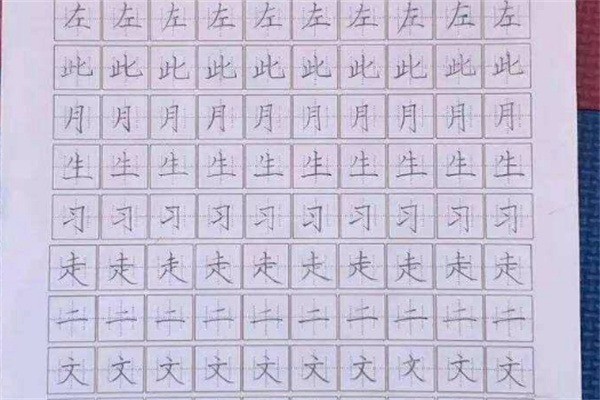 左左左左左左左左左左
此此此此此此此此此此
月月月月月月月月月月
生生生生生生生生生生
习习习习习习习习习习
走走走走走走走走走走
二二二二二二二二二二
文文文文文文文文文文